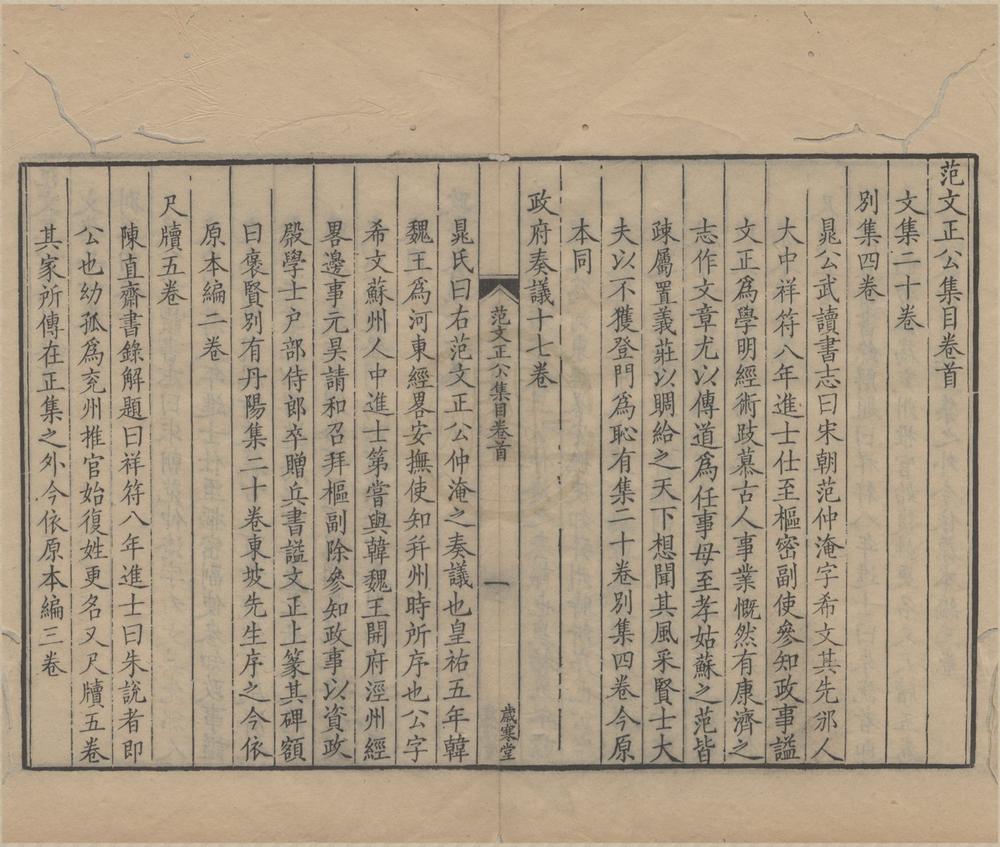 范文正公集目卷首
文集二十卷
別集四卷
晁公武讀書志曰宋朝范仲淹字希文其先邠人
大中祥符八年進士仕至樞密副使參知政事謚
文正爲學明經術跂慕古人事業慨然有康濟之
志作文章尤以傳道爲任事母至孝姑蘇之范皆
疎屬置義莊以賙給之天下想聞其風采賢士大
夫以不獲登門爲恥有集二十卷別集四卷今原
本同
政府奏議十七卷
范文正公集目卷首
一
歲寒堂
晁氏曰右范文正公仲淹之奏議也皇祐五年韓
魏王爲河東經畧安撫使知幷州時所序也公字
希文蘇州人中進士第嘗與韓魏王開府涇州經
畧邊事元昊請和召拜樞副除參知政事以資政
殿學士户部侍郎卒贈兵書謚文正上篆其碑額
曰褒賢別有丹陽集二十卷東坡先生序之今依
原本編二卷
尺牘五卷
陳直齋書錄解題曰祥符八年進士曰朱說者即
公也幼孤爲兖州推官始復姓更名又尺牘五卷
其家所傳在正集之外今依原本編三卷